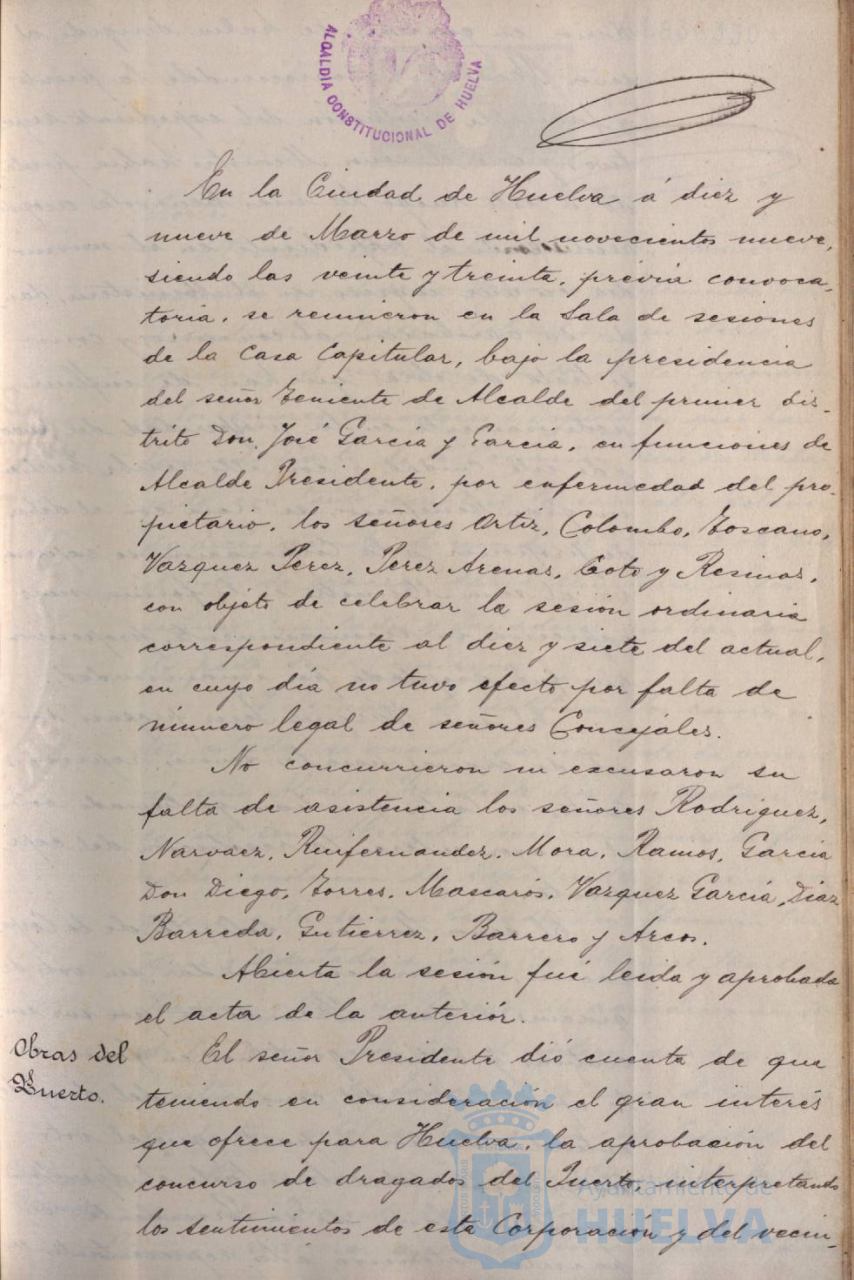 ALCALDIA CONSTITUCIONAL DE HUELVA
En la Ciudad de Huelva á diez y
nueve de Marzo de mil novecientos nueve,
siendo las veinte y treinta, prévia convoca-
toria, se reunieron en la Sala de sesiones
de la Casa Capitular, bajo la presidencia
del señor Teniente de Alcalde del primer dis-
trito Don José García y García, en funciones de
Alcalde Presidente, por enfermedad del pro-
pietario, los señores Ortiz, Colombo, Toscano,
Vazquez Perez, Perez Arenas, Coto y Resinas,
con objeto de celebrar la sesión ordinaria
correspondiente al diez y siete del actual,
en cuyo día no tuvo efecto por falta de
número legal de señores Concejales.
No concurrieron ni excusaron su
falta de asistencia los señores Rodriguez,
Narvaez, Ruifernandez, Mora, Ramos, García
Don Diego, Torres, Mascarós, Vazquez García, Díaz
Barreda, Gutierrez, Barrero y Arcos.
Abierta la sesión fué leida y aprobada
el acta de la anteriór.
Obras del
Puerto.
El señor Presidente dió cuenta de que
teniendo en consideración el gran interés
que ofrece para Huelva, la aprobación del
concurso de dragados del Puerto, interpretando
los sentimientos de esta Corporación y del vecin-
Ayuntamiento de
HUELVA